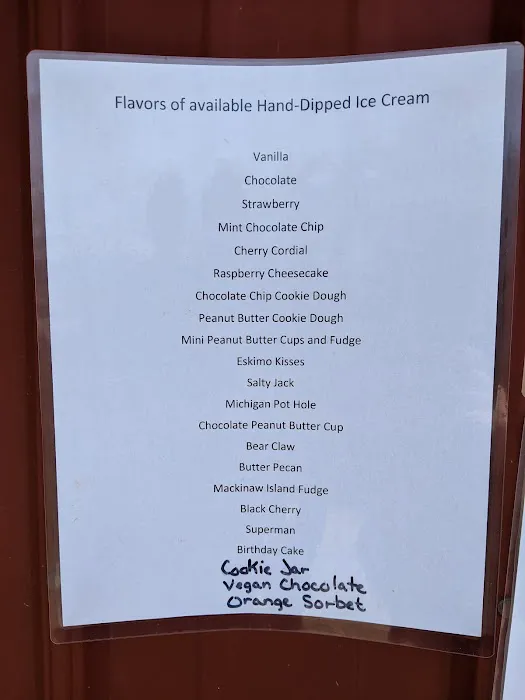 Flavors of available Hand-Dipped Ice Cream
Vanilla
Chocolate
Strawberry
Mint Chocolate Chip
Cherry Cordial
Raspberry Cheesecake
Chocolate Chip Cookie Dough
Peanut Butter Cookie Dough
Mini Peanut Butter Cups and Fudge
Eskimo Kisses
Salty Jack
Michigan Pot Hole
Chocolate Peanut Butter Cup
Bear Claw
Butter Pecan
Mackinaw Island Fudge
Black Cherry
Superman
Birthday Cake
Cookie Jar
Vegan Chocolate
Orange Sorbet